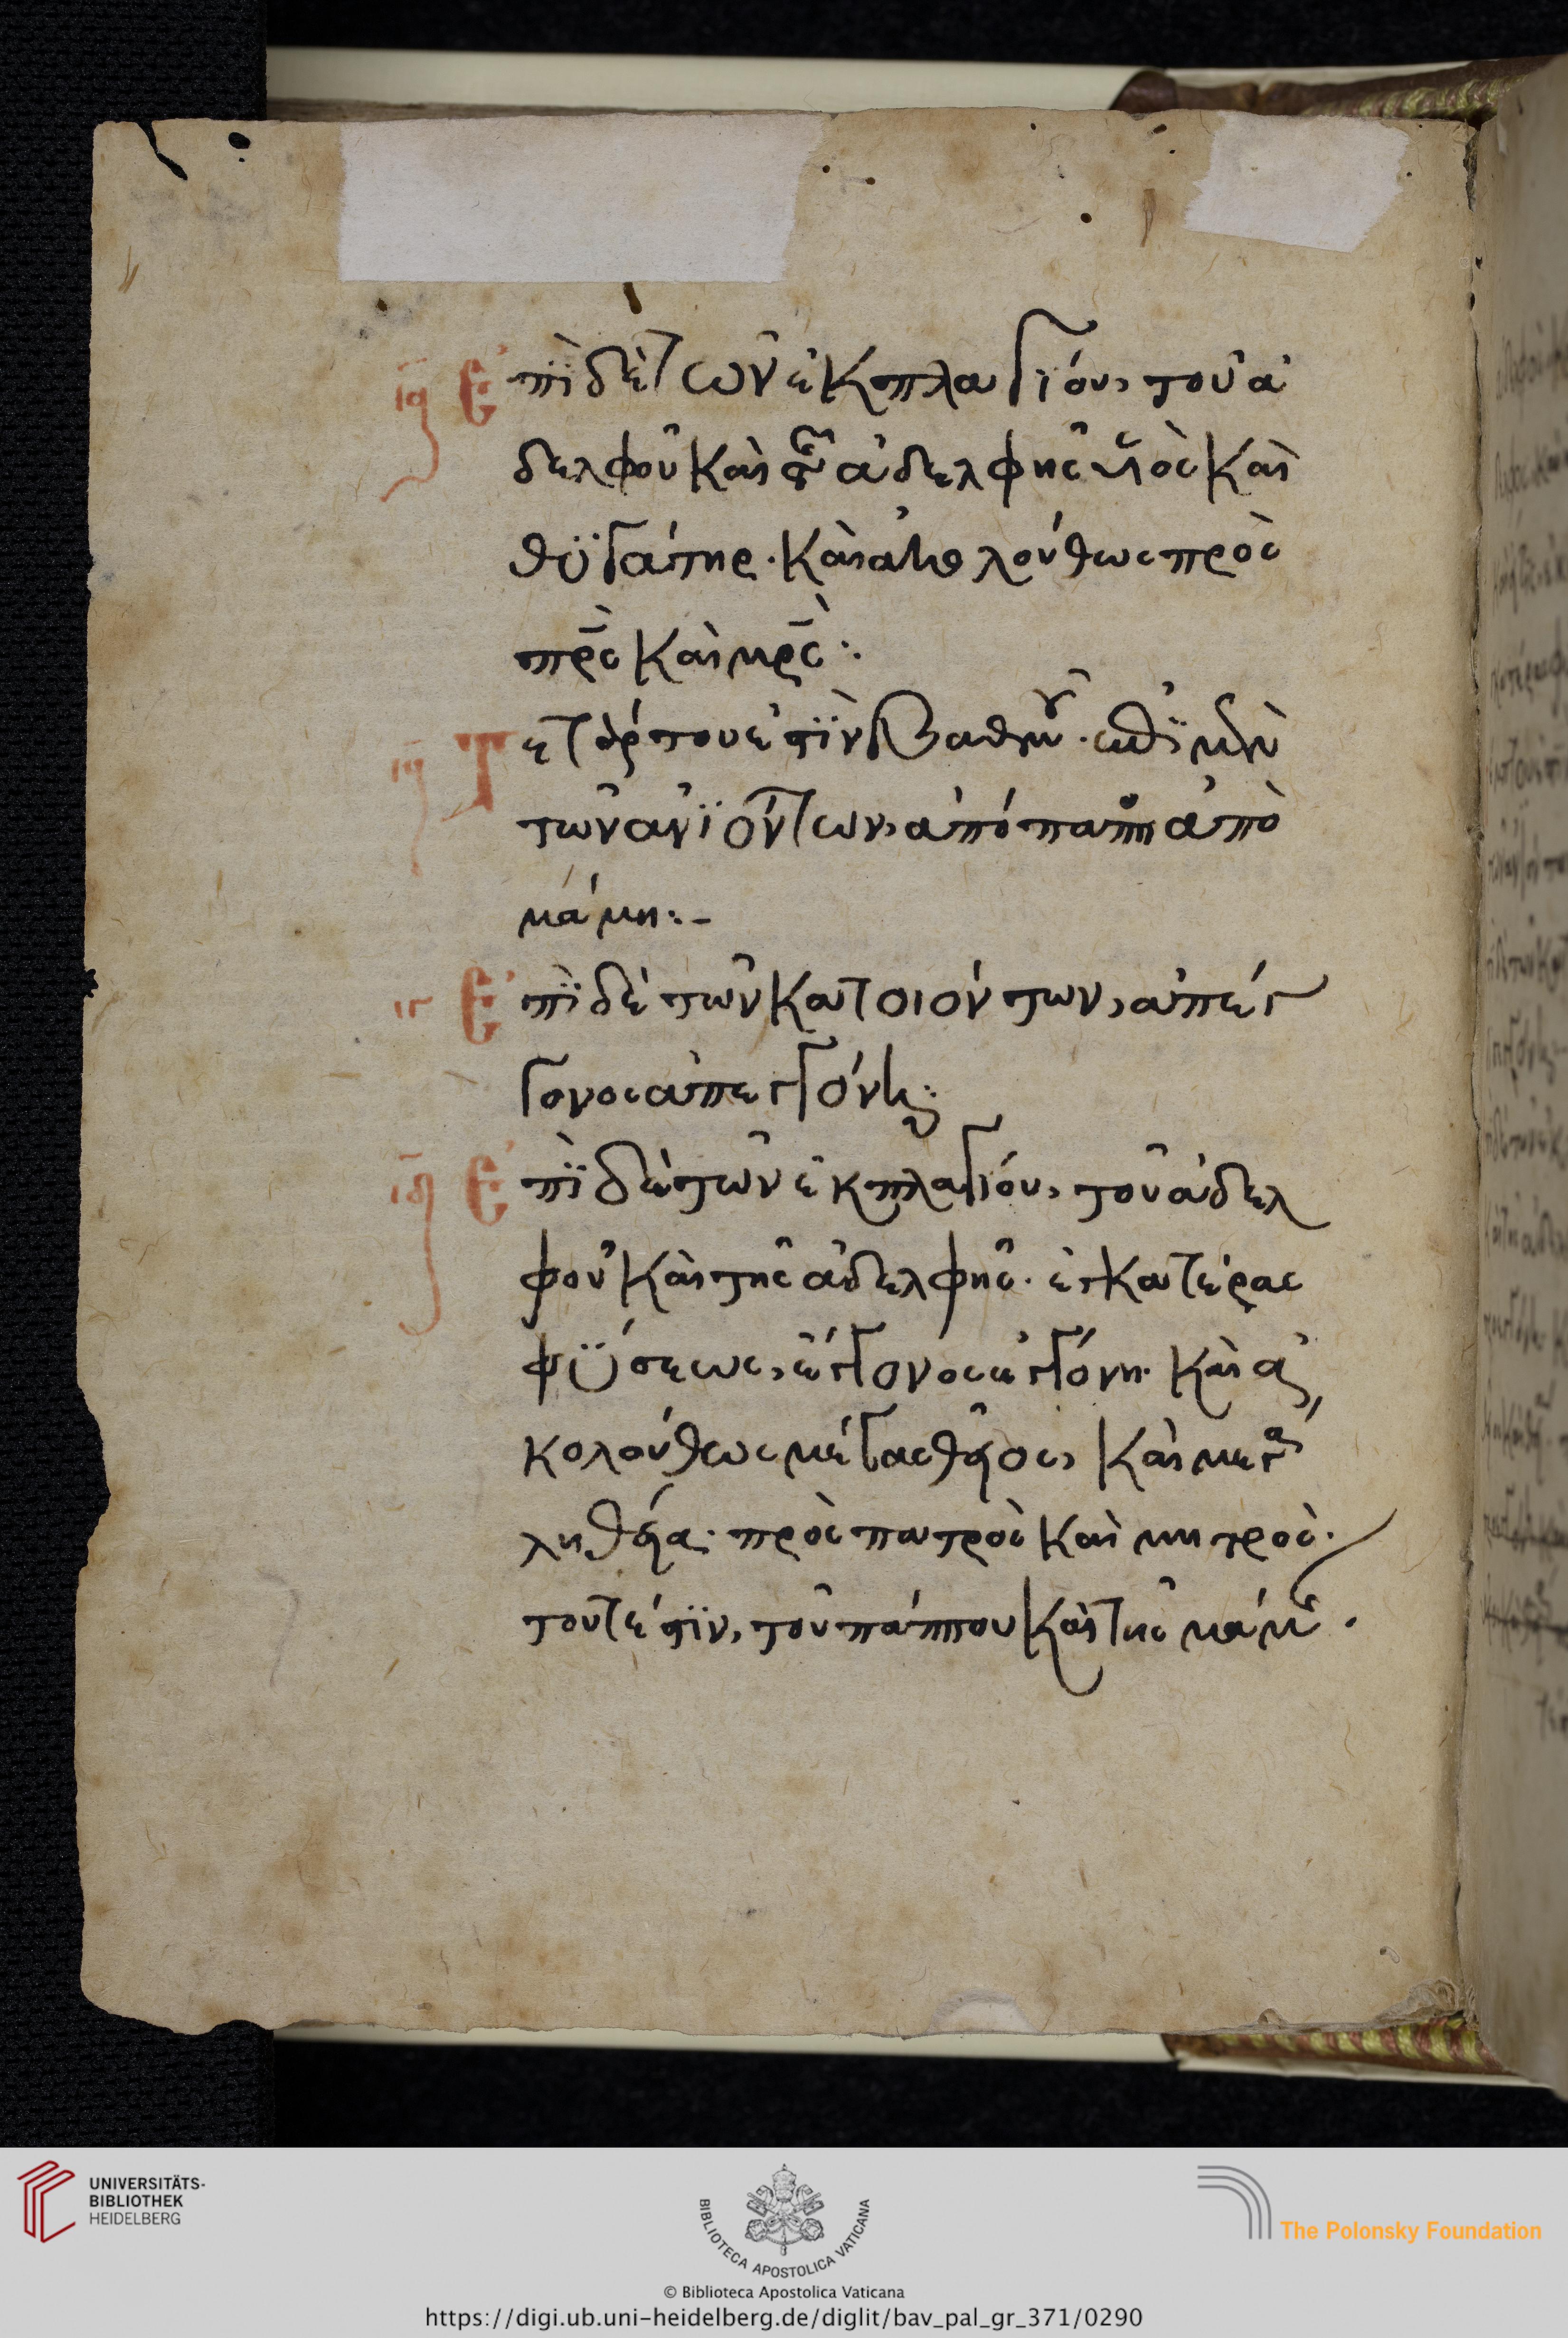 Ἐπῒ δὲ τῶν ἐκ πλαγΐου, τοῦ ἀ
δελφοῦ καὶ τῆς ἀδελφῆς υἱὸς καὶ
θϋγάτηρ. καὶ ἀκολούθως πρὸς
πρ̅ς καὶ μρ̅ς:
Τετάρτου ἐστῒν βαθμοῦ. ἐπῒ μὲν
τῶν ἀνϊόντων, ἀπόπαππος ἀπο
μάμμη:-
Ἐπῒ δὲ τῶν κατϊόντων, ἀπέγ
γονος ἀπεγγόνη:
Ἐπῒ δὲ τῶν ἐκ πλαγίου, τοῦ ἀδελ
φοῦ καὶ τῆς ἀδελφῆς. ἑκατέρας
φϋσεως, ἔγγονος ἐγγόνη. καὶ ἀ
κολούθως μέγας θεῖος, καὶ μεγά
λη θεία. πρὸς πατρὸς καὶ μητρός.
τουτέστϊν, τοῦ πάππου καὶ τῆς μάμμης.
UNIVERSITÄTS-
BIBLIOTHEK
HEIDELBERG
BIBLIOTECA APOSTOLICA VATICANA
The Polonsky Foundation
© Biblioteca Apostolica Vaticana
https://digi.ub.uni-heidelberg.de/diglit/bav_pal_gr_371/0290